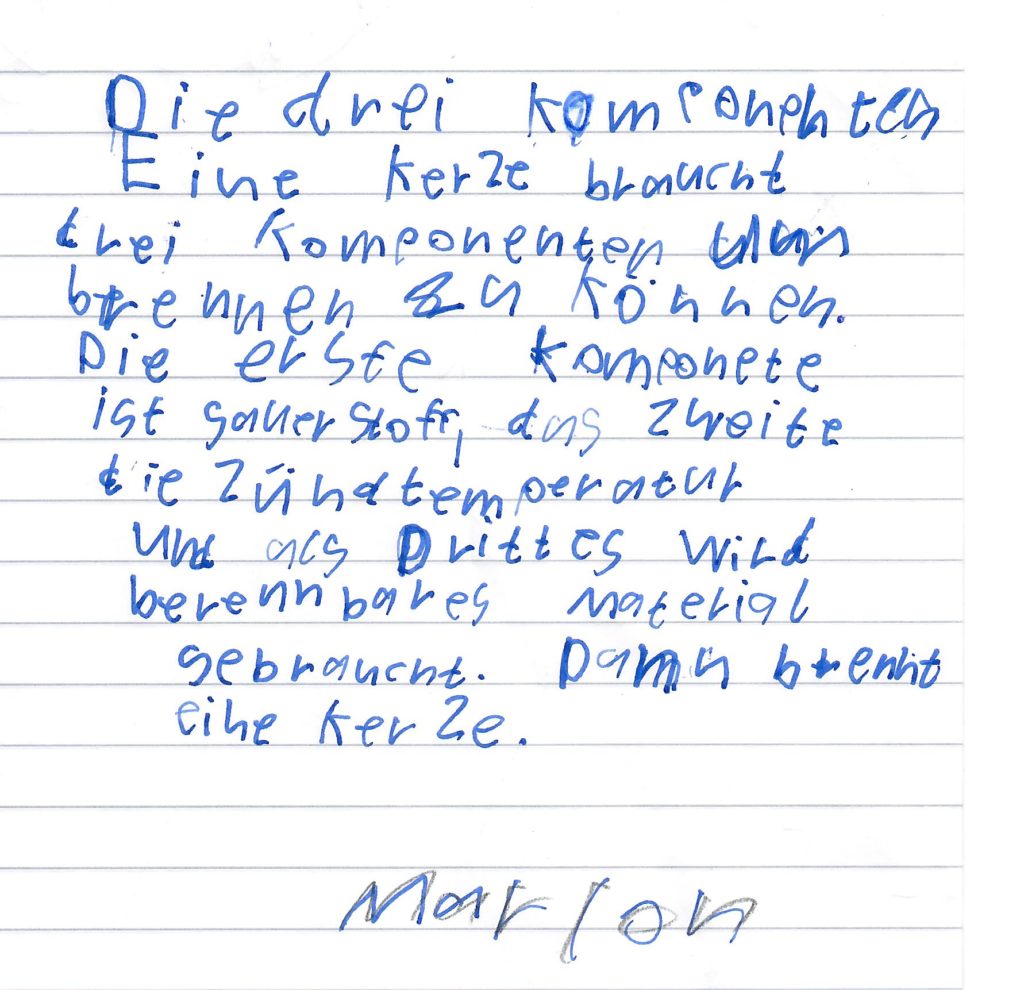 Die drei Komponenten
Eine Kerze braucht
drei Komponenten um
brennen zu können.
Die erste Komponete
ist sauerstoff, das zweite
die Zündtemperatur
und als Drittes wird
berennbares Material
gebraucht. Dann brennt
eine Kerze.
Marlon